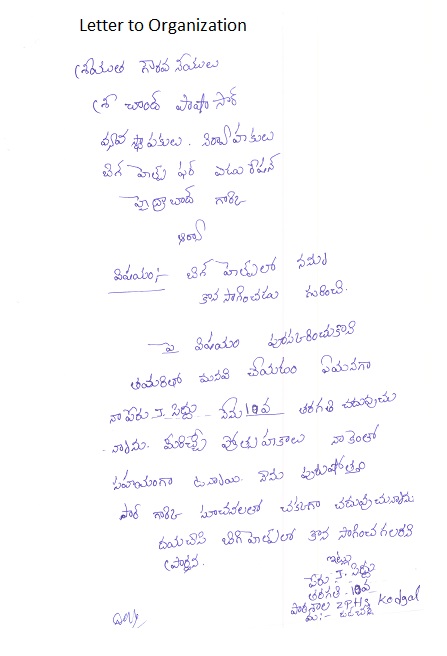 Letter to Organization
శ్రీయుత గౌరవనీయులు
శ్రీ చాంద్ పాషా సార్
వ్యవస్థాపకులు. నిర్వాహకులు
బిగ్ హెల్ప్ ఫర్ ఎడుకేషన్
హైద్రాబాద్ గారికి
విషయం:- బిగ్ హెల్ప్‌లో నన్ను
కొనసాగించడం గురించి.
పై విషయం పురస్కరించుకొని
తమరితో మనవి చేయడం ఏమనగా
నా పేరు J. సిద్దు నేను 10వ తరగతి చదువుచు
న్నాను. మీరిచ్చే ప్రోత్సాహకాలు నాకెంతో
సహయంగా ఉన్నాయి. నేను పురుషోత్తం
సార్ గారికి సూచనలతో చక్కగా చదువుచున్నాను
దయచేసి బిగ్ హెల్ప్‌లో కొనసాగించగలరని
ప్రార్థన.
ఇట్లు
పేరు J. సిద్దు
తరగతి - 10వ
పాఠశాల ZPHS Kodgal